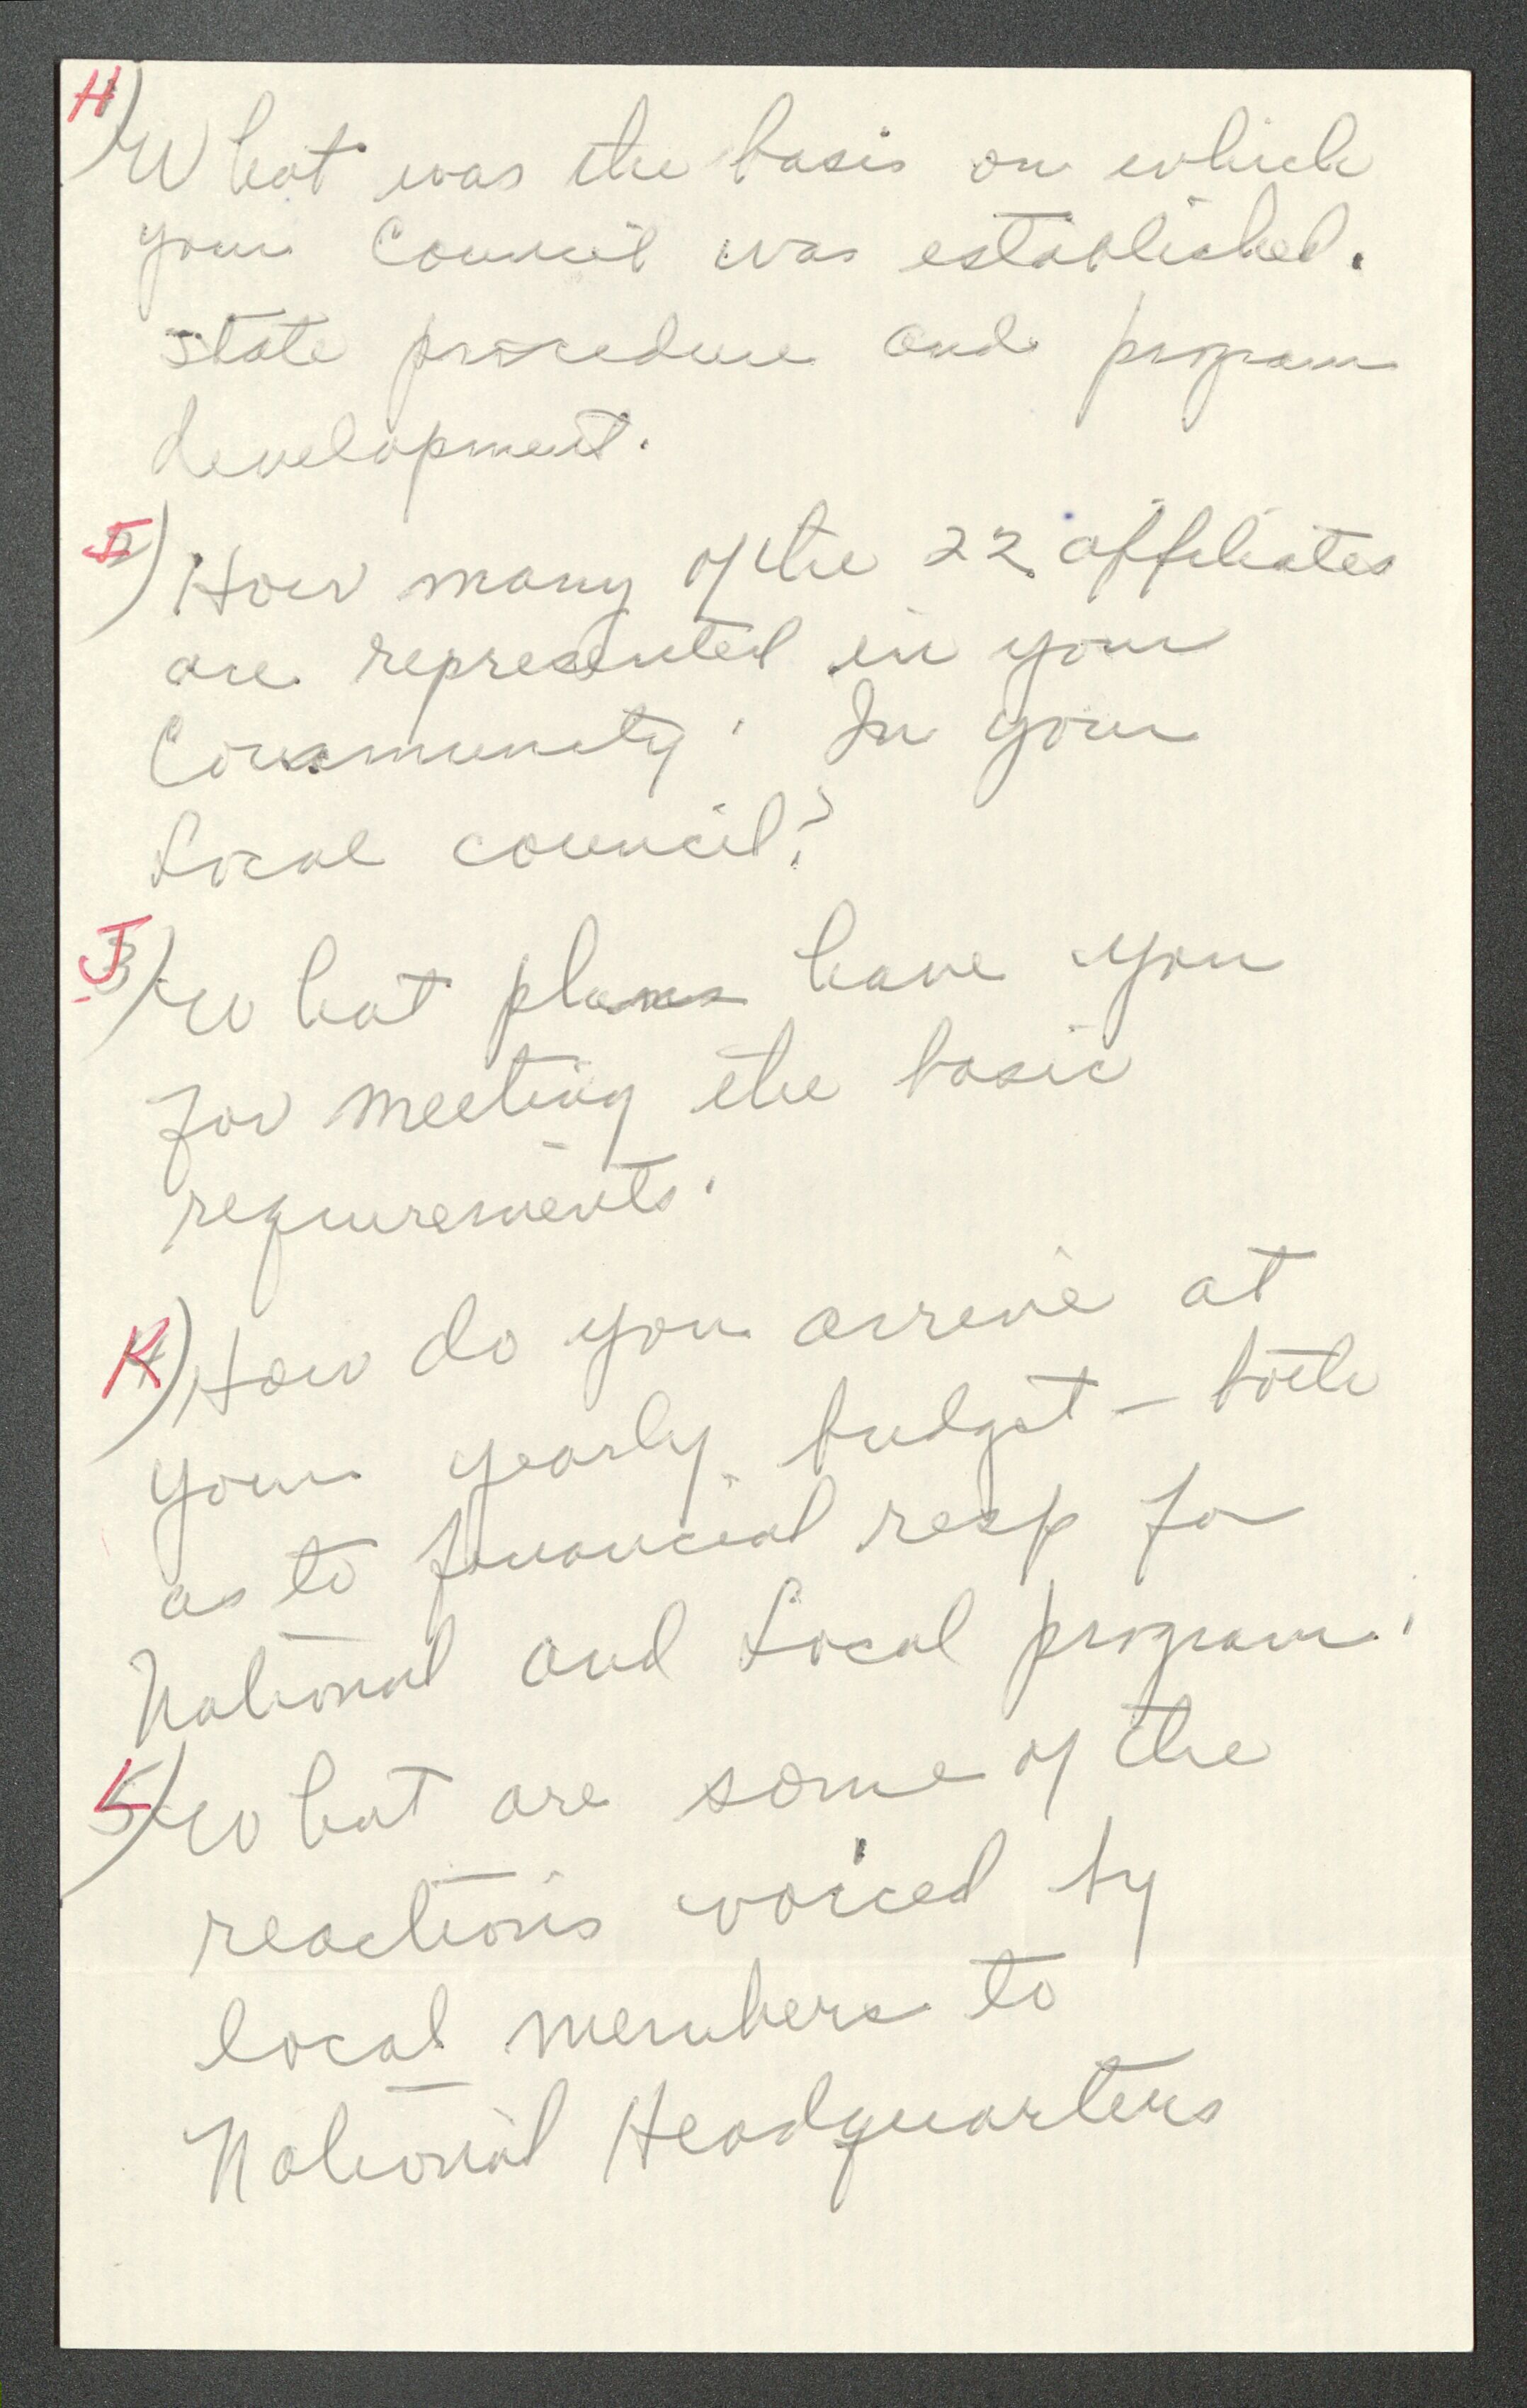 H) What was the basis on which
your Council was established.
state procedure and program
development.
I) How many of the 22 affiliates
are represented in your
Community. In your
Local council?
J) What plans have you
for meeting the basic
requirements.
K) How do you arrive at
your yearly budget – both
as to financial resp for
National and Local program.
L) What are some of the
reactions voiced by
local members to
National Headquarters